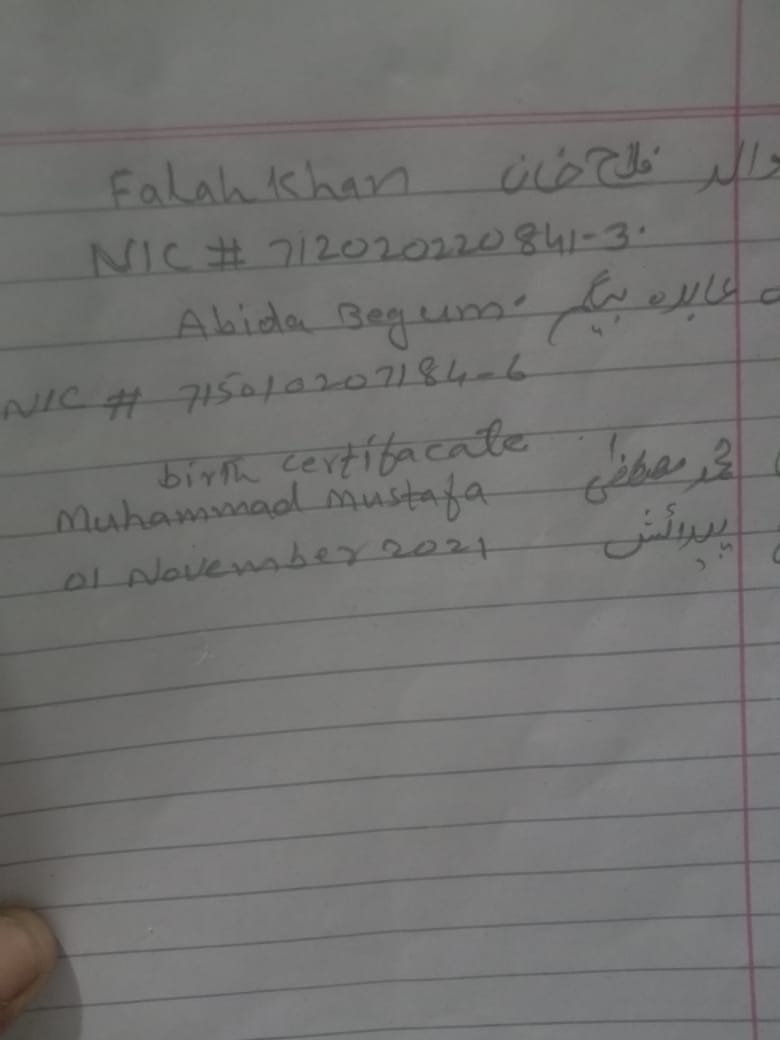 Falah Khan والد فلاح خان
NIC # 712020220841-3.
Abida Begum. عابدہ بیگم
NIC # 715010207184-6
birth certifacate
Muhammad Mustafa محمد مصطفی
01 November 2021 پیدائش